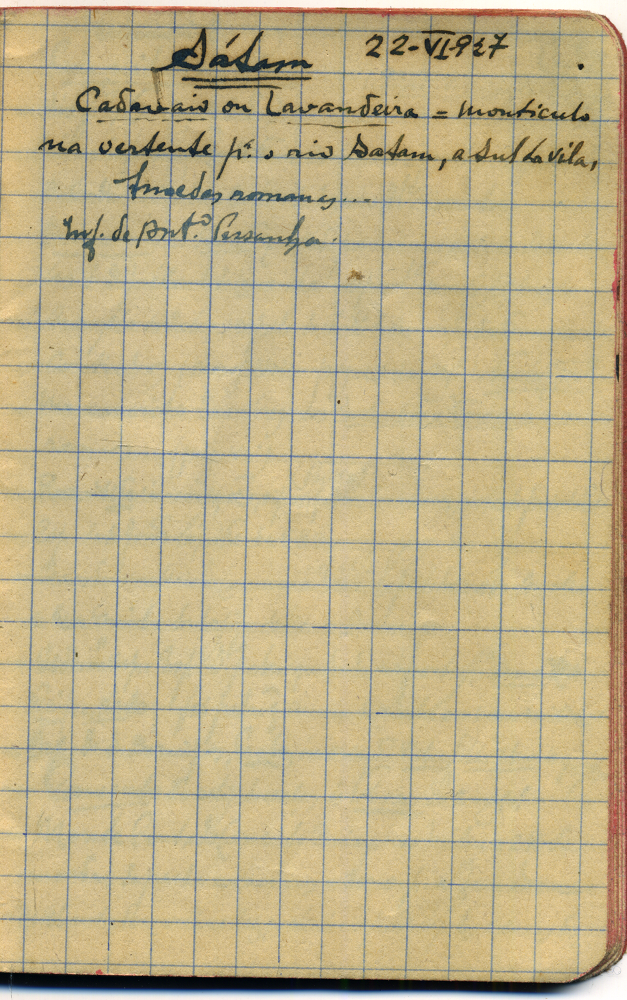 Sátam 22-VI-927
Cadavaio ou Lavandeira = montículo
na vertente p.ª o rio Satam, a sul da vila,
moedas romanas...
Inf. de Ant.º Pessanha.